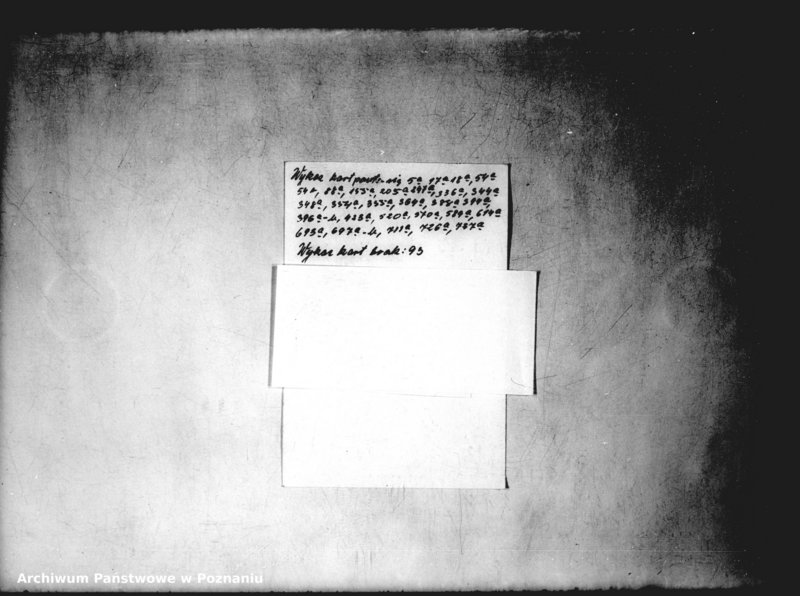 Wykaz kart powtarz. się 5ª 17ª 18ª, 54ª
88ª, 155ª, 205ª 336ª, 344ª
348ª, 354ª, 355ª, 364ª,
396ª-b, 428ª, 520ª, 570ª, 584ª, 614ª
695ª, 697ª-b, 711ª, 726ª, 737ª
Wykaz kart brak: 93
Archiwum Państwowe w Poznaniu